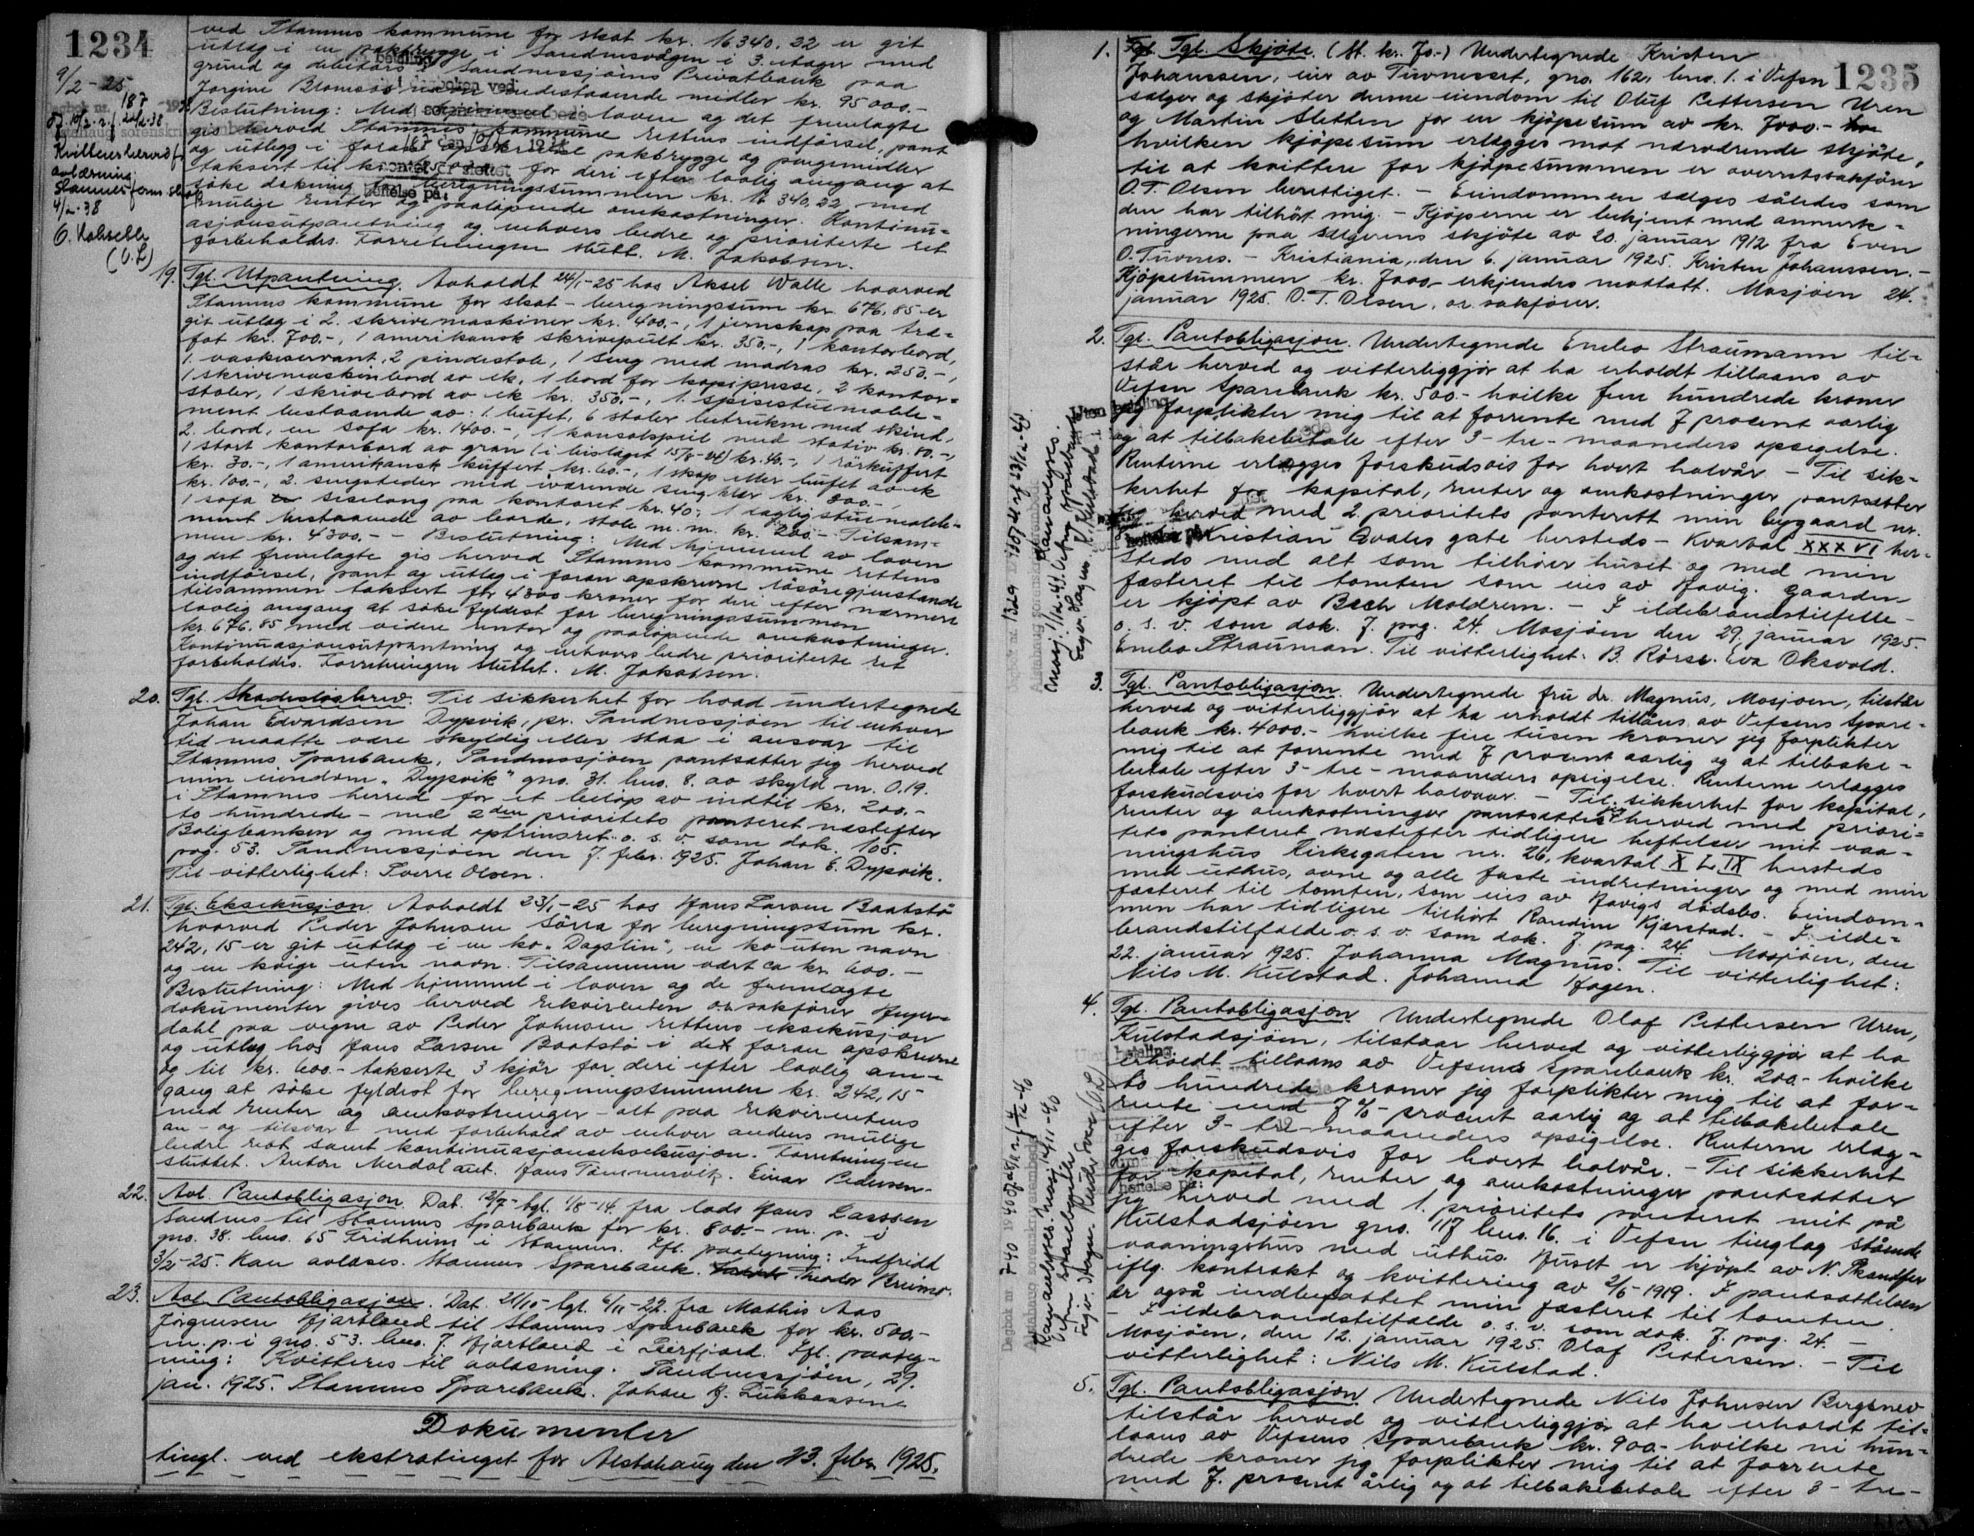 1234
ved Stamnes kommune for skat kr. 16.340.22 er git
utlæg i en pakbrygge i Sandnesvågen i 3. etager med
grund og debitors i Sandnessjøens Privatbank paa
Jørgine indestaaende midler kr. 95000.-
Beslutning: Med hjemmel i loven og det fremlagte
gis herved Stamnes kommune rettens indførsel, pant
og utlegg i foran pakbrygge og pengemidler
taksert til kr. for deri efter lovlig omgang at
søke dækning for beregningssummen kr. 16.340.22 med
mulige renter og paaløpende omkostninger. Kontinu-
asjonsutpantning og enhvers bedre og prioriterte ret
forbeholdes. Forretningen sluttet. M. Jakobsen.
9/2-25
187
Kvitteres herved f.
avlæsning
4/2-38
19. Tgl. Utpantning. Avholdt 24/1-25 hos Aksel Walle hvorved
Stamnes kommune for skat - beregningssum kr. 676.85 er
git utlæg i 2. skrivemaskiner kr. 400.-, 1 jernskap paa træ-
fot kr. 700.-, 1 amerikansk skrivepult kr. 350.-, 1 kontorbord,
1. vaskeservant, 2 pindestole, 1 seng med madras kr. 250.-,
1 skrivemaskinbord av ek, 1 bord for kopipresse, 2 kontor-
stoler, 1 skrivebord av ek kr. 350.-, 1. spisestuemøble-
ment bestaaende av: 1 bufet, 6 stoler betrukne med skind,
2. bord, en sofa kr. 1400.-, 1 konsolspeil med stativ kr. 80.-,
1 stort kontorbord av gran (i bislaget 15/8-24) kr. 40.-, 1 rørkuffert
kr. 30.-, 1 amerikansk kuffert kr. 60.-, 1 skap eller bufet av ek
kr. 100.-, 2. sengsteder med iværende sengklær kr. 200.-,
1 sofa sisilong paa kontoret kr. 40.-, 1 dagligstuemøble-
ment bestaaende av borde, stole m. m. kr. 200.- Tilsam-
men kr. 4300.- - Beslutning: Med hjemmel av loven
og det fremlagte gis herved Stamnes kommune rettens
indførsel, pant og utlæg i foran opskrevne løsøregjenstande
tilsammen taksert for 4300 kroner for deri efter nærmere
lovlig omgang at søke fyldest for beregningssummen
kr. 676.85 med videre renter og paaløpende omkostninger.
Kontinuasjonsutpantning og enhvers bedre prioriterte ret
forbeholdes. Forretningen sluttet. M. Jakobsen.
20. Tgl. Skadesløsbrev. Til sikkerhet for hvad undertegnede
Johan Edvardsen Dypvik, pr. Sandnessjøen til enhver
tid maatte være skyldig eller staa i ansvar til
Stamnes Sparebank, Sandnessjøen pantsætter jeg herved
min eiendom "Dypvik" gno. 31. bno. 8. av skyld m. 0.19.
i Stamnes herred for et beløp av indtil kr. 200.-
to hundrede - med 2den prioritets panteret næstefter
Boligbanken og med optrinsret o. s. v. som dok. 105.
pag. 53. Sandnessjøen den 7. febr. 1925. Johan E. Dypvik.
Til vitterlighet: Sverre Olsen.
21. Tgl. Eksekusjon. Avholdt 23/1-25 hos Hans Larsen Baatstø
hvorved Peder Johnsen Sørra for beregningssum kr.
242,15 er git utlæg i en ko "Dagslin", en ko uten navn
og en kvige uten navn. Tilsammen vært ca kr. 600.-
Beslutning: Med hjemmel i loven og de fremlagte
dokumenter gives herved rekvirenten o.r. sakfører
dahl paa vegne av Peder Johnsen rettens eksekusjon
og utlæg hos Hans Larsen Baatstø i de foran opskrevne
og til kr. 600.- takserte 3 kjør for deri efter lovlig om-
gang at søke fyldest for beregningssummen kr. 242,15
med renter og omkostninger - alt paa rekvirentens
an- og tilsvar - med forbehold av enhver andens mulige
bedre ret samt kontinuasjonseksekusjon. Forretningen
sluttet. Anton Merdal aut. Hans Tømmervik. Einar Pedersen.
22. Avl. Pantobligasjon. Dat. 12/7- tgl. 1/8-14. fra lods Hans Larssen
Sandnes til Stamnes Sparebank for kr. 800.- m. p. i
gno. 38. bno. 65 Fridheim i Stamnes. Ifl. paategning: Indfridd
3/2-25. Kan avlæses. Stamnes Sparebank. Theodor Bruimo.
23. Avl. Pantobligasjon. Dat. 21/10- tgl. 6/11-22. fra Mathis Aas
Jørgensen Hjartland til Stamnes Sparebank for kr. 500.-
m. p. i gno. 53. bno. 7. Hjartland i Leirfjord. Ifl. paateg-
ning: Kvitteres til avlæsning. Sandnessjøen, 29.
jan. 1925. Stamnes Sparebank. Johan
Dokumenter
tingl. ved ekstratinget for Alstahaug den 23. febr. 1925.
1235
1. Tgl. Skjøte. (St. kr. 70.-) Undertegnede Kristen
Johanssen, eier av Tuvneset, gno. 162, bno. 1. i Vefsn
sælger og skjøter denne eiendom til Oluf Pettersen Uren
og Martin Sletten for en kjøpesum av kr. 7000.-
hvilken kjøpesum erlægges mot nærværende skjøte,
til at kvittere for kjøpesummen er overretssakfører
O. T. Olsen berettiget. - Eiendommen sælges således som
den har tilhørt mig. - Kjøperne er bekjent med anmerk-
ningerne paa sælgerens skjøte av 20. januar 1912 fra Even
O. Tuvnes. - Kristiania, den 6. januar 1925. Kristen Johanssen. -
Kjøpesummen kr. 7000.- erkjendes mottatt. Mosjøen 24.
januar 1925. O. T. Olsen, o.r. sakfører.
2. Tgl. Pantobligasjon. Undertegnede Enebo Straumann til-
står herved og vitterliggjør at ha erholdt tillaans av
Vefsn Sparebank kr. 500.- hvilke fem hundrede kroner
jeg forplikter mig til at forrente med 7 procent aarlig
og at tilbakebetale efter 3- tre- maaneders opsigelse.
Renterne erlægges forskudsvis for hvert halvår - Til sik-
kerhet for kapital, renter og omkostninger pantsætter
jeg herved med 2. prioritets panterett min bygaard nr.
Kristian Qvales gate hersteds - Kvartal XXXVI her-
steds med alt som tilhører huset og med min
fæsteret til tomten som eies av Havig. Gaarden
er kjøpt av Bech Moldrem. - I ildebrandstilfelle -
o. s. v. som dok. 7. pag. 24. Mosjøen den 29. januar 1925.
Enebo Strauman. Til vitterlighet: B. Rørse. Eva Oksvold.
3. Tgl. Pantobligasjon. Undertegnede fru dr. Magnus, Mosjøen, tilstår
herved og vitterliggjør at ha erholdt tillåns av Vefsens Spare-
bank kr. 4000.- hvilke fire tusen kroner jeg forplikter
mig til at forrente med 7 procent aarlig og at tilbake-
betale efter 3- tre- maaneders opsigelse. Renterne erlægges
forskudsvis for hvert halvaar. - Til sikkerhet for kapital,
renter og omkostninger pantsætter jeg herved med priori-
tets panteret næstefter tidligere heftelser mit vaa-
ningshus Kirkegaten nr. 26, kvartal XLIX hersteds
med uthus, ovne og alle faste indretninger og med min
fæsteret til tomten, som eies av Havigs dødsbo. Eiendom-
men har tidligere tilhørt Randine Kjærstad. - I ilde-
brandstilfælde o. s. v. som dok. 7. pag. 24. Mosjøen, den
22. januar 1925. Johanna Magnus. Til vitterlighet:
Nils M. Kulstad. Johanna Hagen.
4. Tgl. Pantobligasjon. Undertegnede Olaf Pettersen Uren,
Kulstadsjøen, tilstaar herved og vitterliggjør at ha
erholdt tillaans av Vefsens Sparebank kr. 200.- hvilke
to hundrede kroner jeg forplikter mig til at for-
rente med 7%- procent aarlig og at tilbakebetale
efter 3- tre- maaneders opsigelse. Renterne erlæg-
ges forskudsvis for hvert halvår. - Til sikkerhet
for kapital, renter og omkostninger pantsætter
jeg herved med 1. prioritets panteret mit på
Kulstadsjøen gno. 117 bno. 16. i Vefsn tinglag stående
vaaningshus med uthus. Huset er kjøpt av N.
iflg. kontrakt og kvittering av 2/6-1919. I pantsættelsen
er også indbefattet min fæsteret til tomten.
- I ildebrandstilfælde o. s. v. som dok. 7. pag. 24. -
Mosjøen, den 12. januar 1925. Olaf Pettersen. - Til
vitterlighet: Nils M. Kulstad.
5. Tgl. Pantobligasjon. Undertegnede Nils Johnsen Bergsnev
tilstår herved og vitterliggjør at ha erholdt til-
laans av Vefsens Sparebank kr. 900.- hvilke ni hun-
drede kroner jeg forplikter mig til at forrente
med 7. procent årlig og at tilbakebetale efter 3- tre-